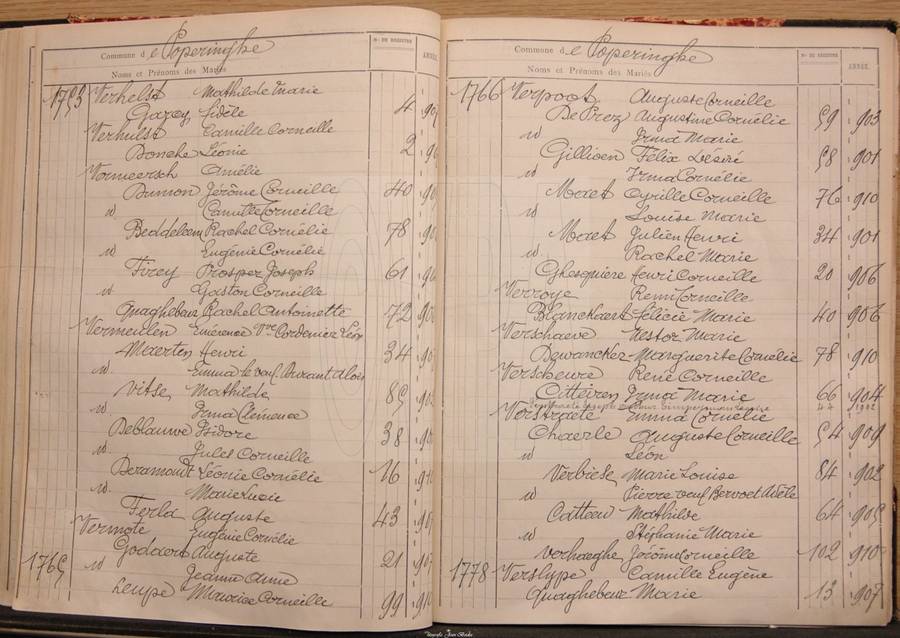 Commune de Poperinghe
Noms et Prénoms des Mariés
Nos DE REGISTRE
ANNÉE
1753 Verhelst Mathilde Marie
Garey Fidèle 4
Verhulst Camille Corneille
Donche Léonie 2
Vermeersch Amélie
Dumon Jérôme Corneille 40
id Camille Corneille
Beddeleem Rachel Cornélie 78
id Eugénie Cornélie
Firey Prosper Joseph 61
id Gaston Corneille
Quaghebeur Rachel Antoinette 72
Vermeulen Emérence Vve Cordenier Léon
Maerten Henri 34
id. Emma le veuf Durant Aloïs
Vitse Mathilde 85
id. Irma Clémence
Deblauwe Isidore 38
id Jules Corneille
Deramoudt Léonie Cornélie 16
id. Marie Lucie
Ferla Auguste 43
Vermote Eugénie Cornélie
Goddaert Auguste 21
1765 id Jeanne Anne
Leupe Maurice Corneille 99
Commune de Poperinghe
Noms et Prénoms des Mariés
Nos DE REGISTRE
ANNÉE.
1766 Verpoot Auguste Corneille
De Prez Augustine Cornélie 59 903
id Irma Marie
Gillioen Félix Désiré 58 901
id Irma Cornélie
Maet Cyrille Corneille 76 910
id Louise Marie
Maet Julien Henri 34 901
id. Rachel Marie
Ghesquière Henri Corneille 20 906
Verroye Remi Corneille
Blanckaert Félicie Marie 40 906
Verschaeve Nestor Marie
Dewancker Marguerite Cornélie 78 910
Verscheure René Corneille
Ottevaen Irma Marie 66 904
Verstraete Emma Cornélie
Chaerle Auguste Corneille 54 909
id Léon
Verbieke Marie Louise 84 902
id Pierre veuf Bervoet Adèle
Catteau Mathilde 64 905
id Stéphanie Marie
Verhaeghe Jérôme Corneille 102 910
1778 Verslype Camille Eugène
Quaghebeur Marie 13 907